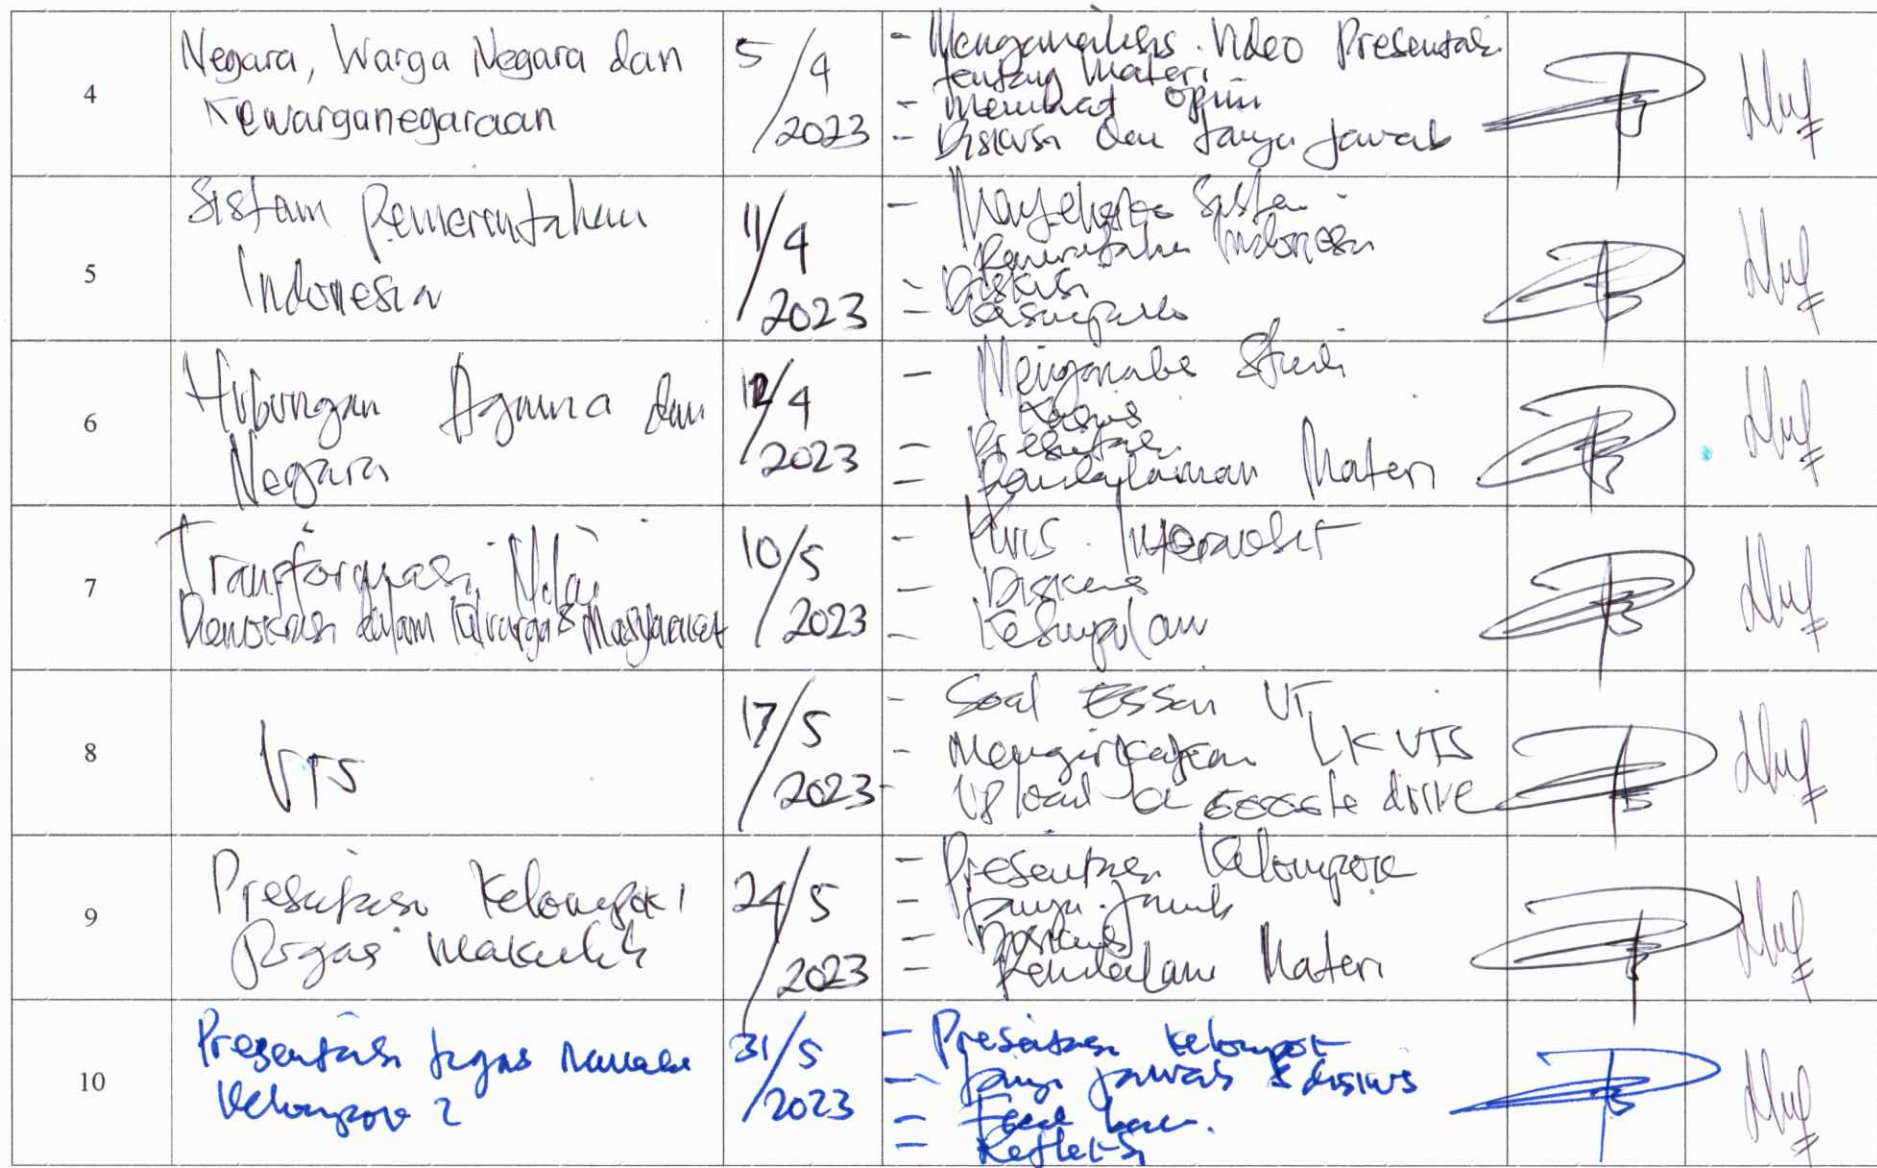 4
Negara, Warga Negara dan
Kewarganegaraan
5/4
2023
- Menganalisis Video Presentasi
tentang Materi
- Membuat Opini
- Diskusi dan Tanya Jawab
5
Sistem Pemerintahan
Indonesia
11/4
2023
- Sistem
Pemerintahan Indonesia
- Diskusi
- Kesimpulan
6
Hubungan Agama dan
Negara
12/4
2023
- Menganalisis Studi
Kasus
- Presentasi
- Pendalaman Materi
7
Transformasi Nilai
Demokrasi dalam Keluarga & Masyarakat
10/5
2023
- Kuis Interaktif
- Diskusi
- Kesimpulan
8
UTS
17/5
2023
- Soal Essay
- Mengerjakan LK UTS
- Upload di Google drive
9
Presentasi Kelompok 1
Tugas Makalah
24/5
2023
- Presentasi Kelompok
- Tanya Jawab
- Diskusi
- Pendalaman Materi
10
Presentasi tugas Makalah
Kelompok 2
31/5
2023
- Presentasi Kelompok
- Tanya jawab & diskusi
- Feed back.
- Refleksi